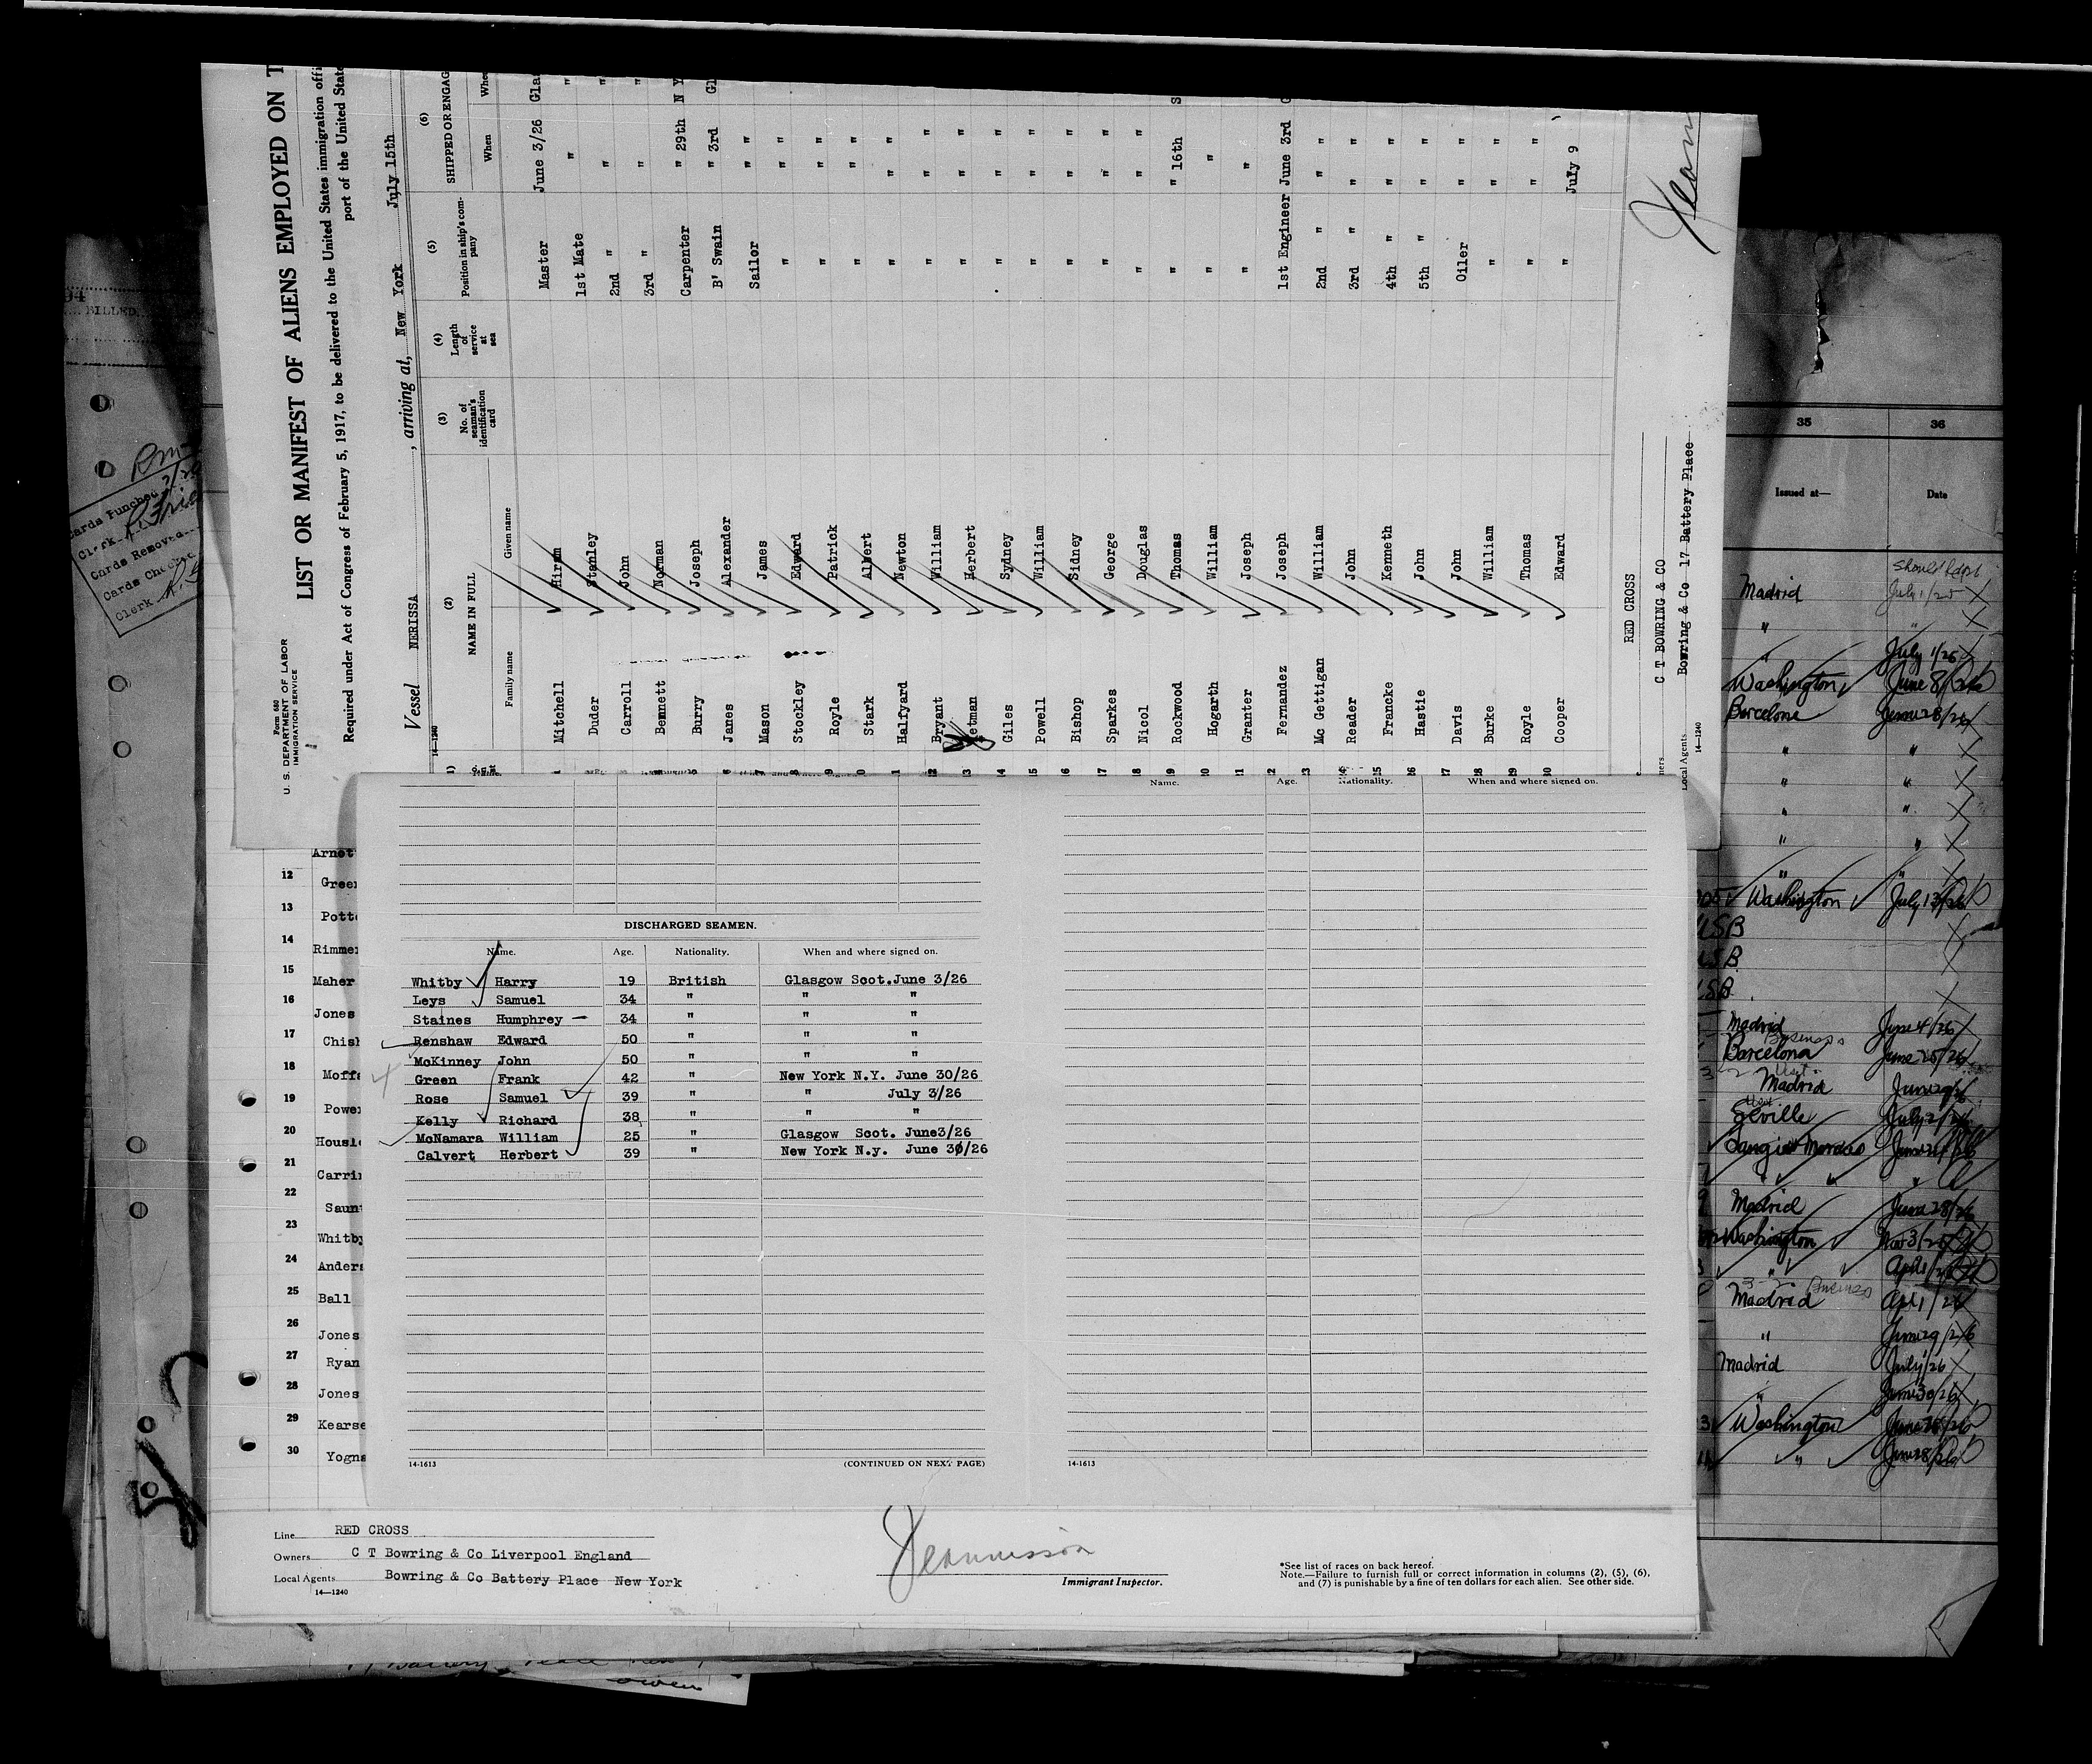 Form 680
U. S. DEPARTMENT OF LABOR
IMMIGRATION SERVICE
LIST OR MANIFEST OF ALIENS EMPLOYED ON T
Required under Act of Congress of February 5, 1917, to be delivered to the United States immigration offi
port of the United State
Vessel NERISSA , arriving at, New York July 15th
14—1240
(2) (3) (4) (5) (6)
NAME IN FULL No. of seaman's identification card Length of service at sea Position in ship's company SHIPPED OR ENGAG
Family name Given name When Whe
Mitchell Hiram Master June 3/26 Gla
Duder Stanley 1st Mate " "
Carroll John 2nd " " "
Bennett Norman 3rd " " "
Burry Joseph Carpenter " 29th N Y
James Alexander B' Swain " 3rd Gl
Mason James Sailor " "
Stockley Edward " " "
Royle Patrick " " "
Stark Albert " " "
Halfyard Newton " " "
Bryant William " " "
Herbert " " "
Giles Sydney " " "
Powell William " " "
Bishop Sidney " " "
Sparkes George " " "
Nicol Douglas " " "
Rockwood Thomas " " 16th S
Hogarth William " "
Granter Joseph " "
Fernandez Joseph 1st Engineer June 3rd
Mc Gettigan William 2nd " " "
Reader John 3rd " " "
Francke Kenneth 4th " " "
Hastie John 5th " " "
Davis John Oiler " "
Burke William " " "
Royle Thomas " " "
Cooper Edward " July 9
RED CROSS
C T BOWRING & CO
Local Agents Bowring & Co 17 Battery Place
14—1240
Arnot
12 Green
13 Potte
14 Rimme
15 Maher
16 Jones
17 Chish
18 Moffa
19 Power
20 Housl
21 Carri
22 Saun
23 Whitby
24 Anders
25 Ball
26 Jones
27 Ryan
28 Jones
29 Kearse
30 Yogna
DISCHARGED SEAMEN.
Name. Age. Nationality. When and where signed on.
Whitby Harry 19 British Glasgow Scot. June 3/26
Leys Samuel 34 " " "
Staines Humphrey — 34 " " "
Renshaw Edward 50 " " "
McKinney John 50 " " "
Green Frank 42 " New York N.Y. June 30/26
Rose Samuel 39 " " July 3/26
Kelly Richard 38 " " "
McNamara William 25 " Glasgow Scot. June3/26
Calvert Herbert 39 " New York N.y. June 30/26
14-1613 (CONTINUED ON NEXT PAGE)
Name. Age. Nationality. When and where signed on.
14-1613
Line RED CROSS
Owners C T Bowring & Co Liverpool England
Local Agents Bowring & Co Battery Place New York
14—1240
Immigrant Inspector.
*See list of races on back hereof.
Note.—Failure to furnish full or correct information in columns (2), (5), (6),
and (7) is punishable by a fine of ten dollars for each alien. See other side.
BILLED
Cards Punched
Clerk
Cards Removed
Cards Checked
Clerk
35 36
Issued at— Date
Madrid July 1/25
" "
" July 1/26
Washington June 8/26
Barcelona June 28/26
" "
" "
" "
" "
" "
Washington July 13/26
USB
Madrid June 4/26
Barcelona June 25/26
Madrid June 29/26
Seville July 2/26
Madrid June 28/26
Washington Nov 3/25
Madrid Apl 1/26
" June 29/26
Madrid July 1/26
" June 30/26
Washington June 28/26
" June 28/26